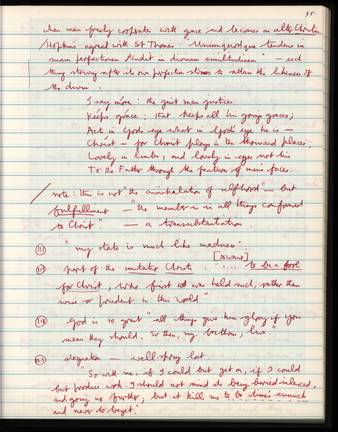 95.
when man freely cooperates with grace and becomes an alter Christus
Hopkins agreed with St Thomas "Unumquodque tendens in
suam perfectionem tendit in divinam similitudinem" — each
thing striving after its own perfection strives to attain the likeness of
the divine.
I say móre: the just man justices
Keeps gráce: that keeps all his goings graces;
Acts in God's eye what in God's eye he is —
Christ — for Christ plays in ten thousand places,
Lovely in limbs, and lovely in eyes not his
To the Father through the features of men's faces.
note: this is not "the annihilation of selfhood" — but
fulfillment — "the member is in all things conformed
to Christ" — a transubstantiation.
"my state is much like madness"
part of the imitatio Christi "... to be a fool
for Christ, who first was held such, rather than
wise or prudent in this world"
God is so great "all things give him glory if you
mean they should. So then, my brethren, live."
stagnation — well-spring lost
"So with me, if I could but get on, if I could
but produce work I should not mind its being buried, silenced,
and going no further, but it kills me to be time's eunuch
and never to beget."